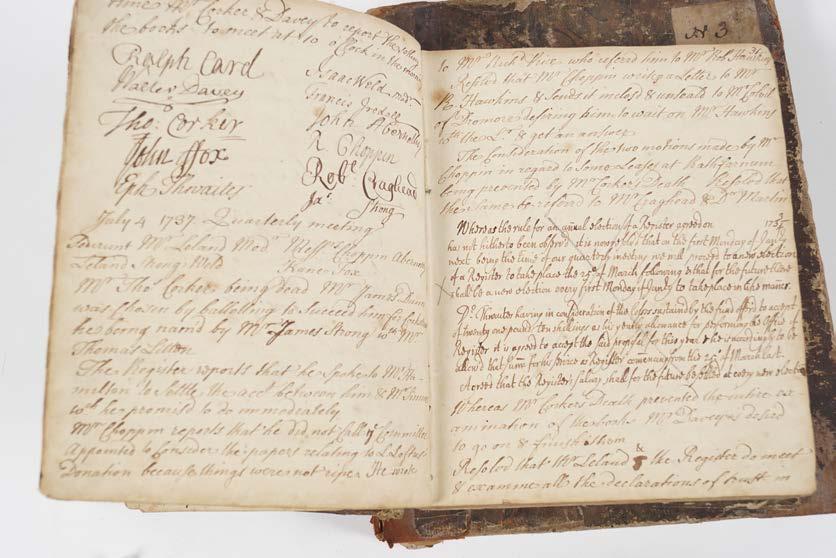 time Mr. Corker & Davey to report the
the books to meet at 10 o'Clock in the
Ralph Card
Isaac Weld modr.
Davey
Francis
Tho: Corker
John Abernethy
John ffox
R Choppin
Eph Thwaites
Robt. Craghead
Jas. Strong
July 4 1737 Quarterly meeting
Mr. Leland Modr. Messrs. Choppin Abernethy
Leland Strong Weld Kane Fox
Mr. Thos. Corker being Dead Mr. James Dunn
was Chosen by balloting to succeed him
he being nam'd by Mr. James Strong & Mr.
Thomas Litton
The Register reports that he spoke to Mr. Ha-
milton to settle the acct. between him & Mr. Simon
wch. he promis'd to do immediately
Mr. Choppin reports that he did not call ye Committee
Appointed to Consider the papers relating to Loftus
Donation because things were not ripe. He wrote
No 3
to Mr. Richd. who refered him to Mr. Rob Hawkins
Resolvd that Mr. Choppin write a Letter to Mr.
Hawkins & Sends it inclosd & unseald to Mr.
of Dromore desiring him to wait on Mr. Hawkins
wth. the Lr. & get an answer
The Consideration of the two motions made by Mr.
Choppin in regard to Some Leases at Rathfarnum
being prevented by Mr. Corkers Death Resolved that
the Same be referd to Mr. Craghead & Dr. Martin
Whereas the rule for an annual election of a Register agreed on
has not hitherto been observ'd it is now resolved that on the first Monday of Janry
next being the time of our quarterly meeting we will proceed to a new election
of a Register to take place the 25th of March following & that for the future there
shall be a new election every first Monday of Janry to take place in like manner.
Dr. Thwaites having in consideration of the losses sustain'd by the fund offer'd to accept
of twenty one pound ten shillings as his yearly allowance for performing the Office of
Register it is agreed to accept the said proposal for this year & he is accordingly to be
allow'd that summ for his service as Register commencing from the 25th of March last.
Agreed that the Register's salary shall for the future be settled at every new election
Whereas Mr. Corkers Death prevented the entire ex
amination of the books Mr. Davey is desired
to go on & finish them
Resolvd that Mr. Leland & the Register do meet
& examine all the declarations of trust in